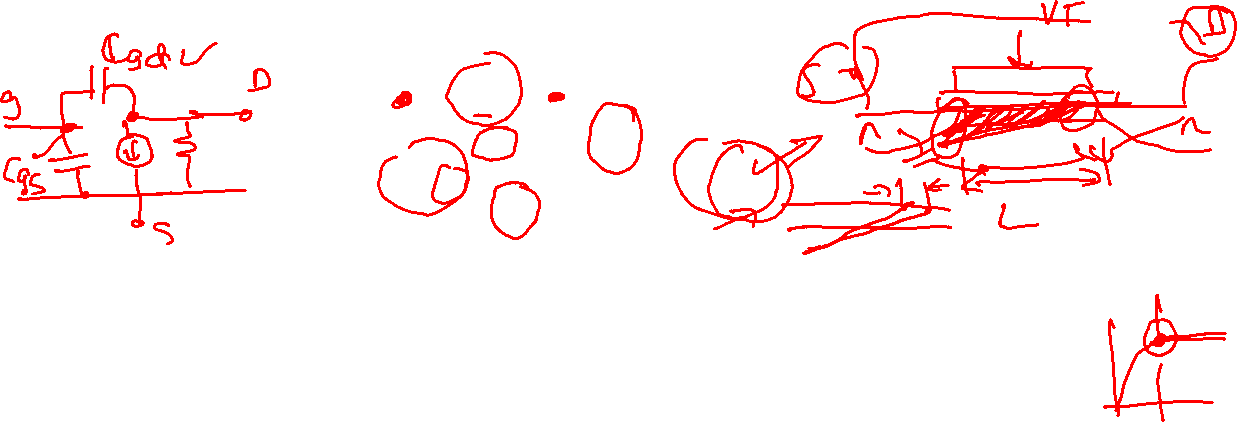 Cgd
g
D
Cgs
S
S
VT
D
n
n
L